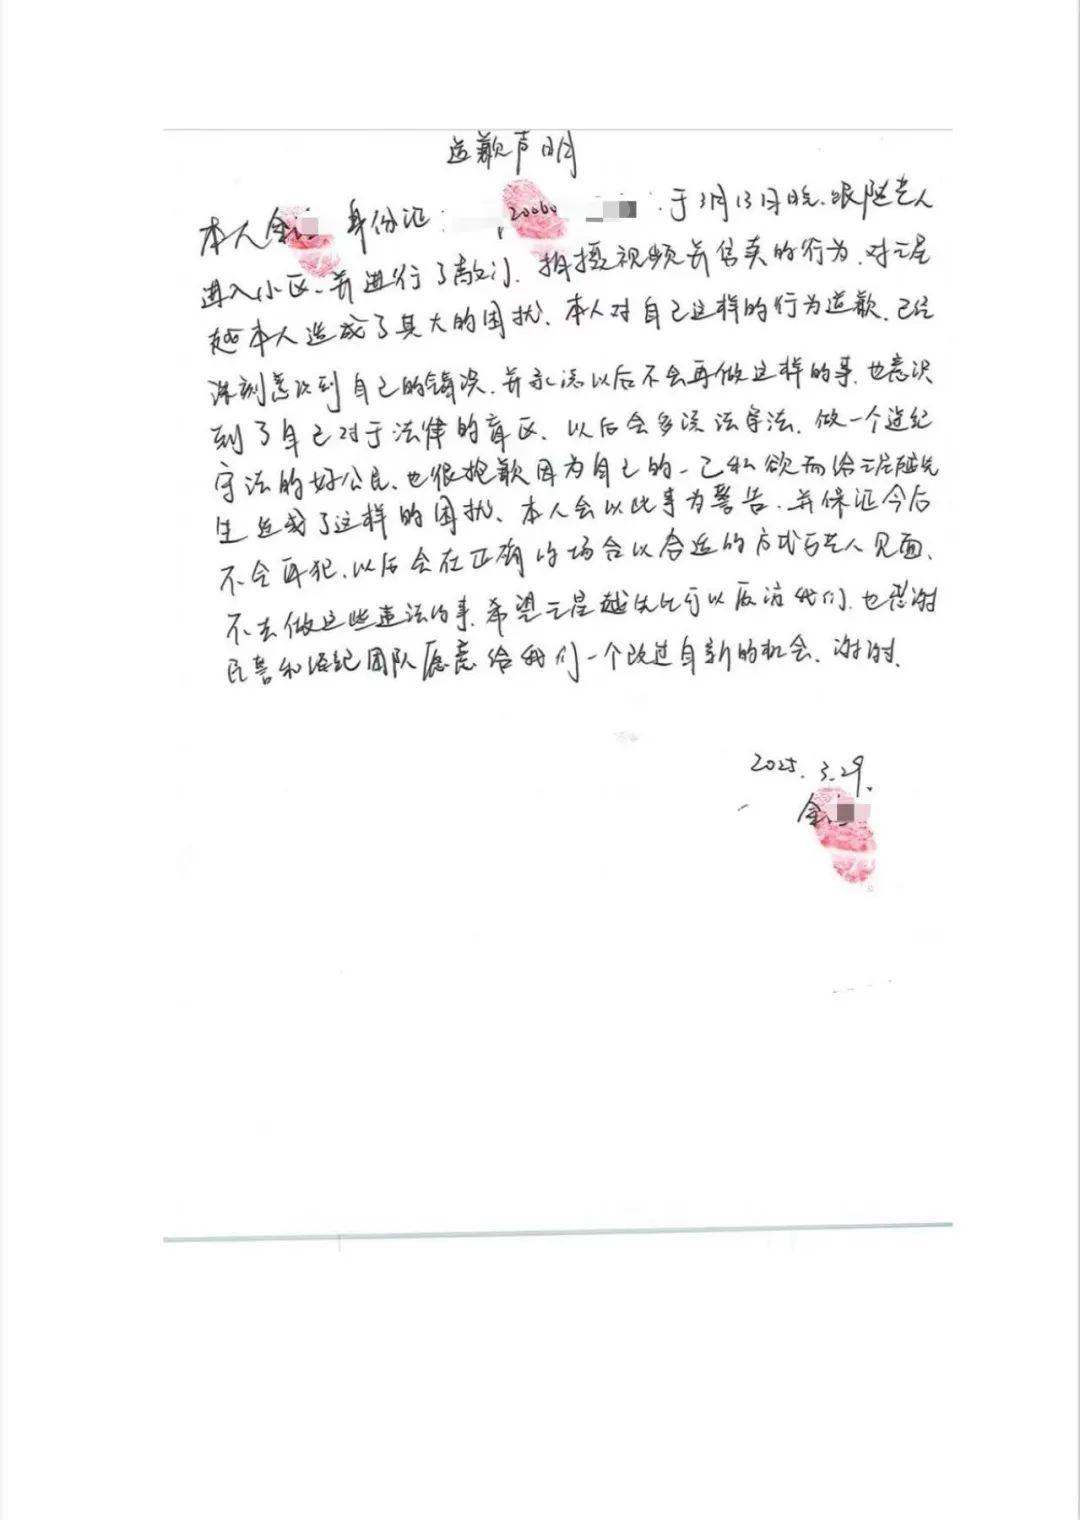 道歉声明
本人金 身份证: 20060 于3月13日晚、跟随艺人
进入小区、并进行了敲门、拍摄视频并售卖的行为、对王星
越本人造成了具大的困扰、本人对自己这样的行为道歉、已经
深刻意识到自己的错误、并永远以后不会再做这样的事、也意识
到了自己对于法律的盲区、以后会多学法守法、做一个遵纪
守法的好公民、也很抱歉因为自己的一己私欲而给王星越先
生造成了这样的困扰、本人会以此事为警告、并保证今后
不会再犯、以后会在正确的场合以合适的方式与艺人见面、
不去做这些违法的事、希望王星越先生可以原谅我们、也感谢
民警和经纪团队愿意给我们一个改过自新的机会、谢谢、
2025.3.29.
金